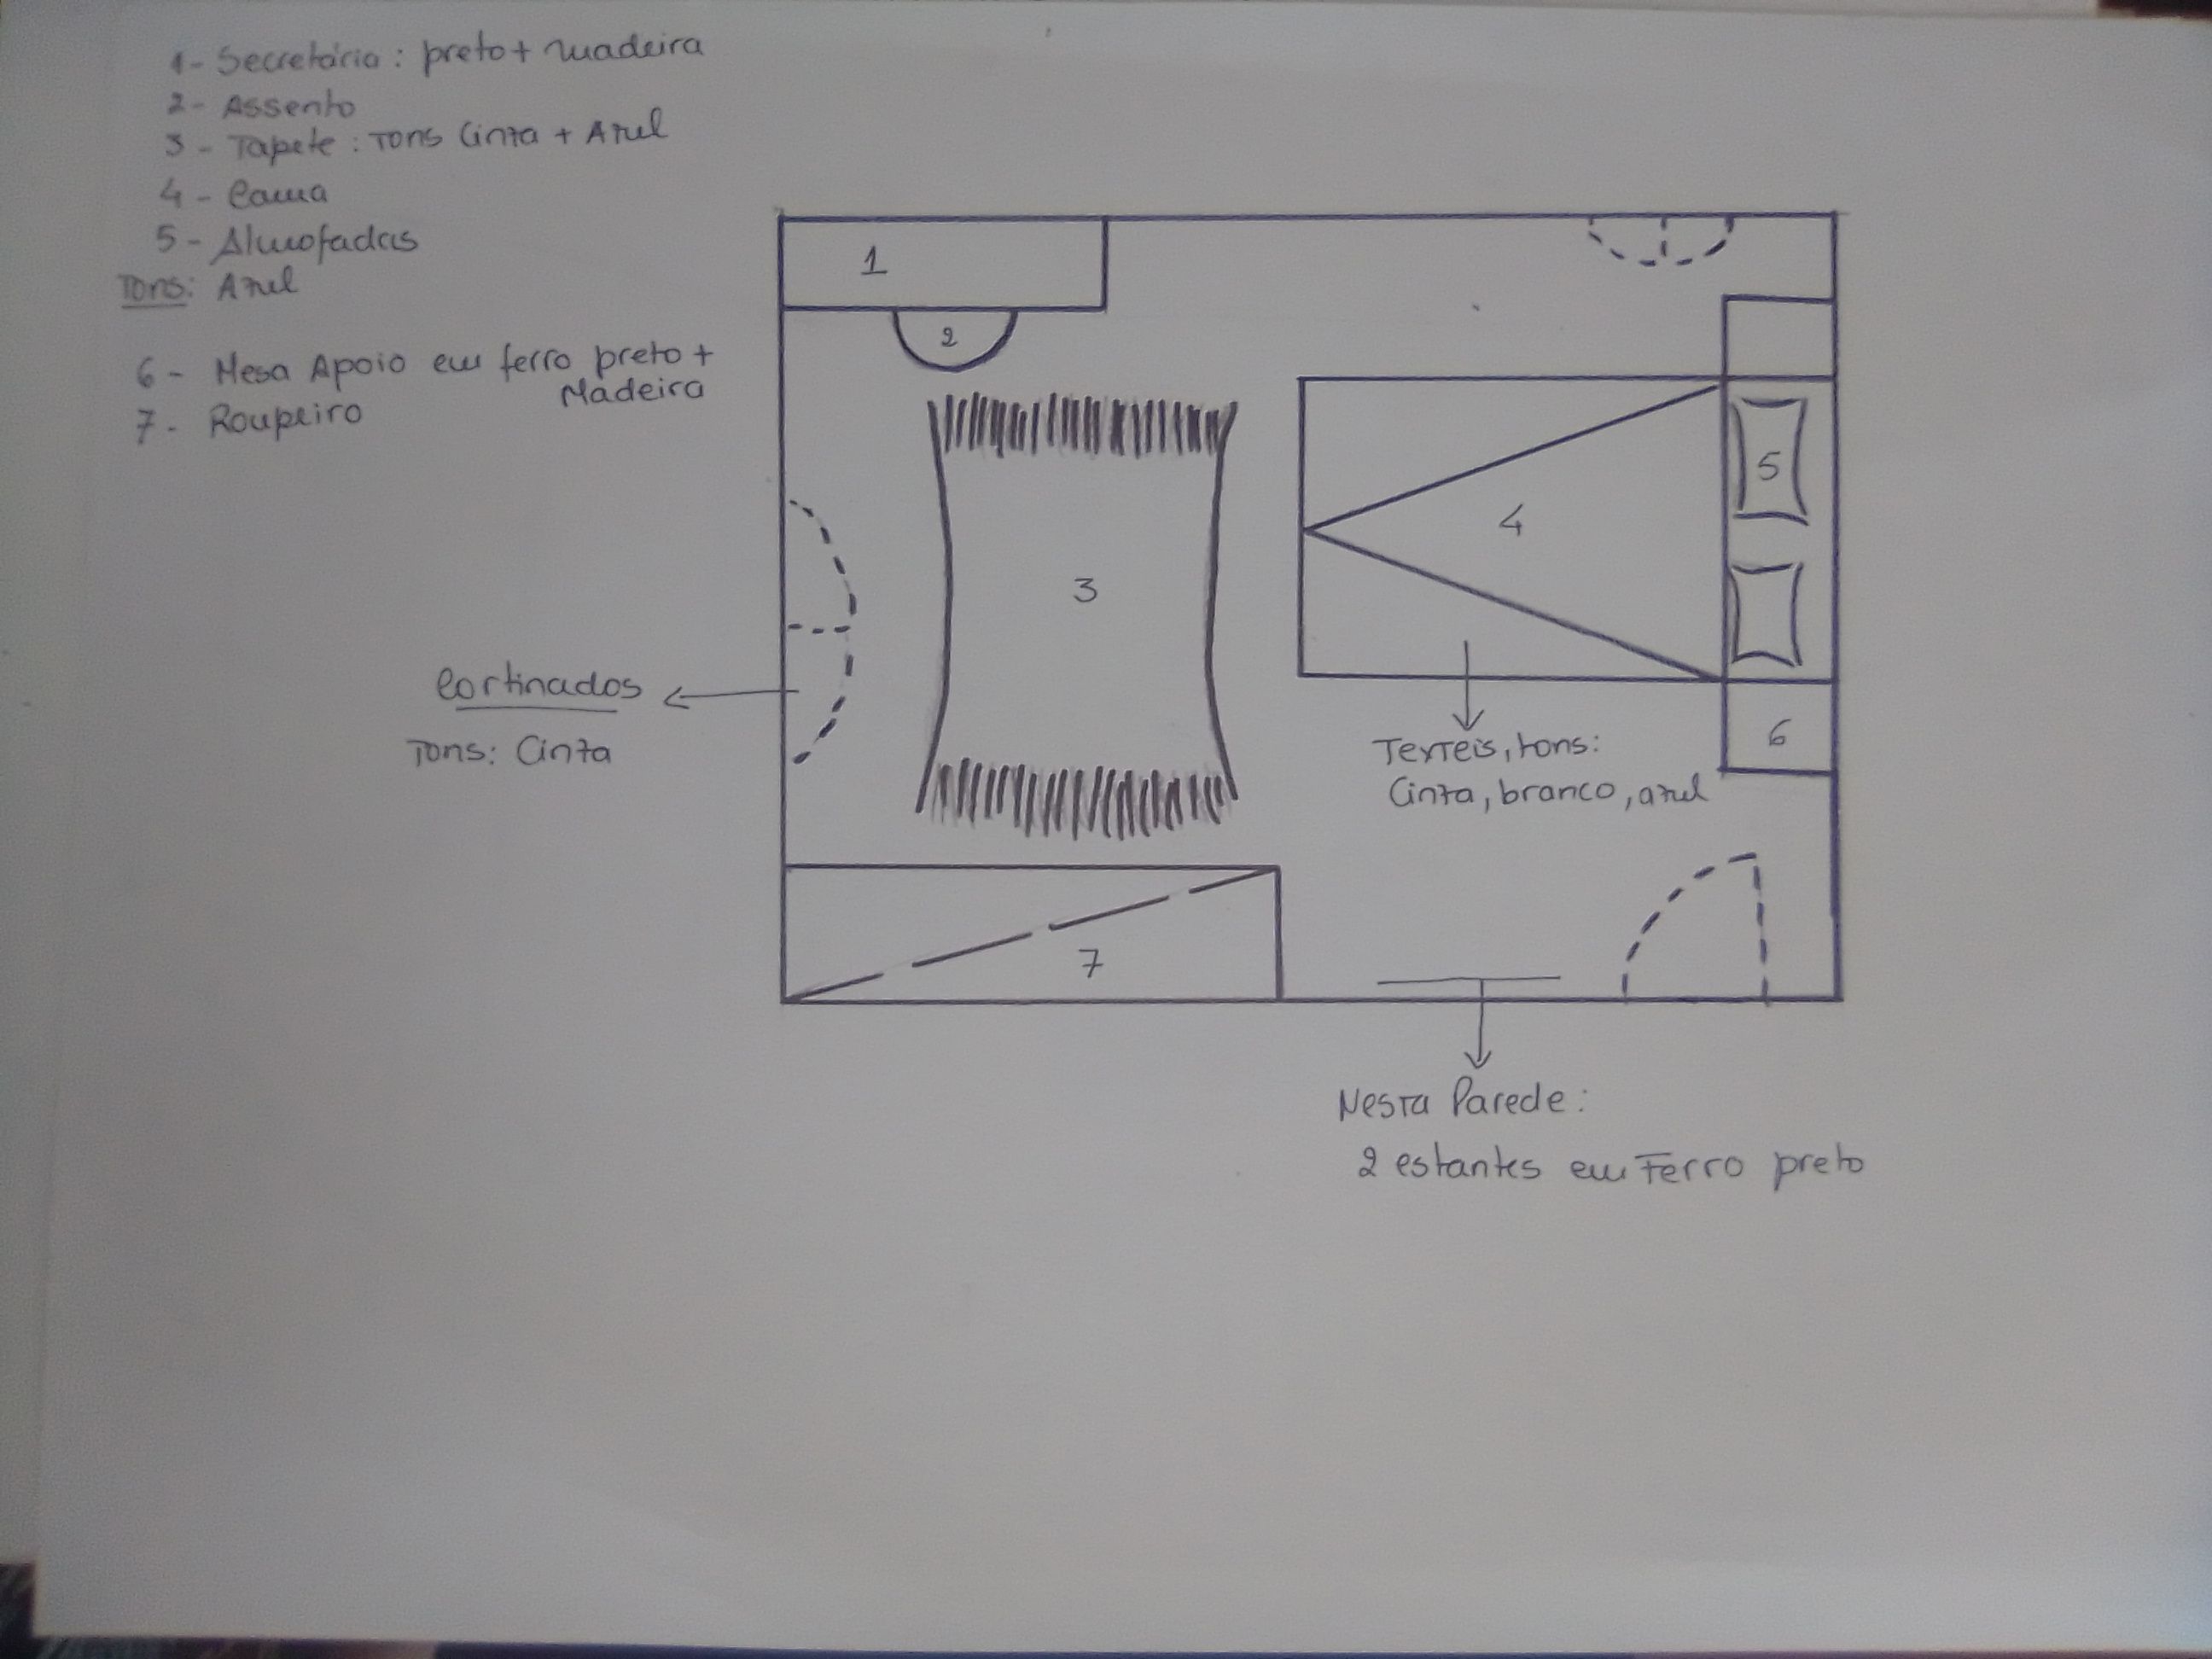 1- Secretária: preto + madeira
2- Assento
3- Tapete: Tons Cinza + Azul
4- Cama
5- Almofadas
Tons: Azul
6- Mesa Apoio em ferro preto +
Madeira
7- Roupeiro
1
2
3
4
5
6
7
Cortinados
Tons: Cinza
Texteis, tons:
Cinza, branco, azul
Nesta Parede:
2 estantes em Ferro preto